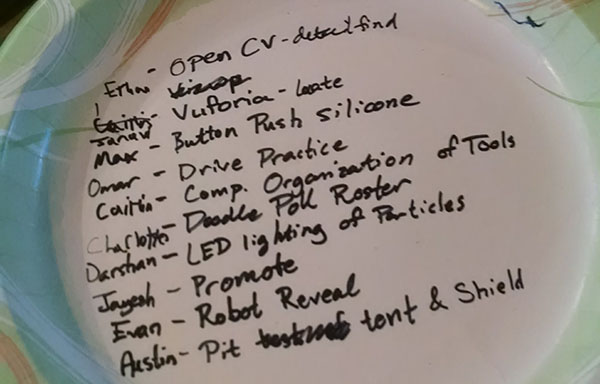 Ethan - Open CV - detail find
Janav Vuforia - Locate
Max - Button Push Silicone
Omar - Drive Practice
Caitlin - Comp. Organization of Tools
Charlotte - Doodle Poll Roster
Darshan - LED lighting of Particles
Jayesh - Promote
Evan - Robot Reveal
Austin - Pit tent & Shield